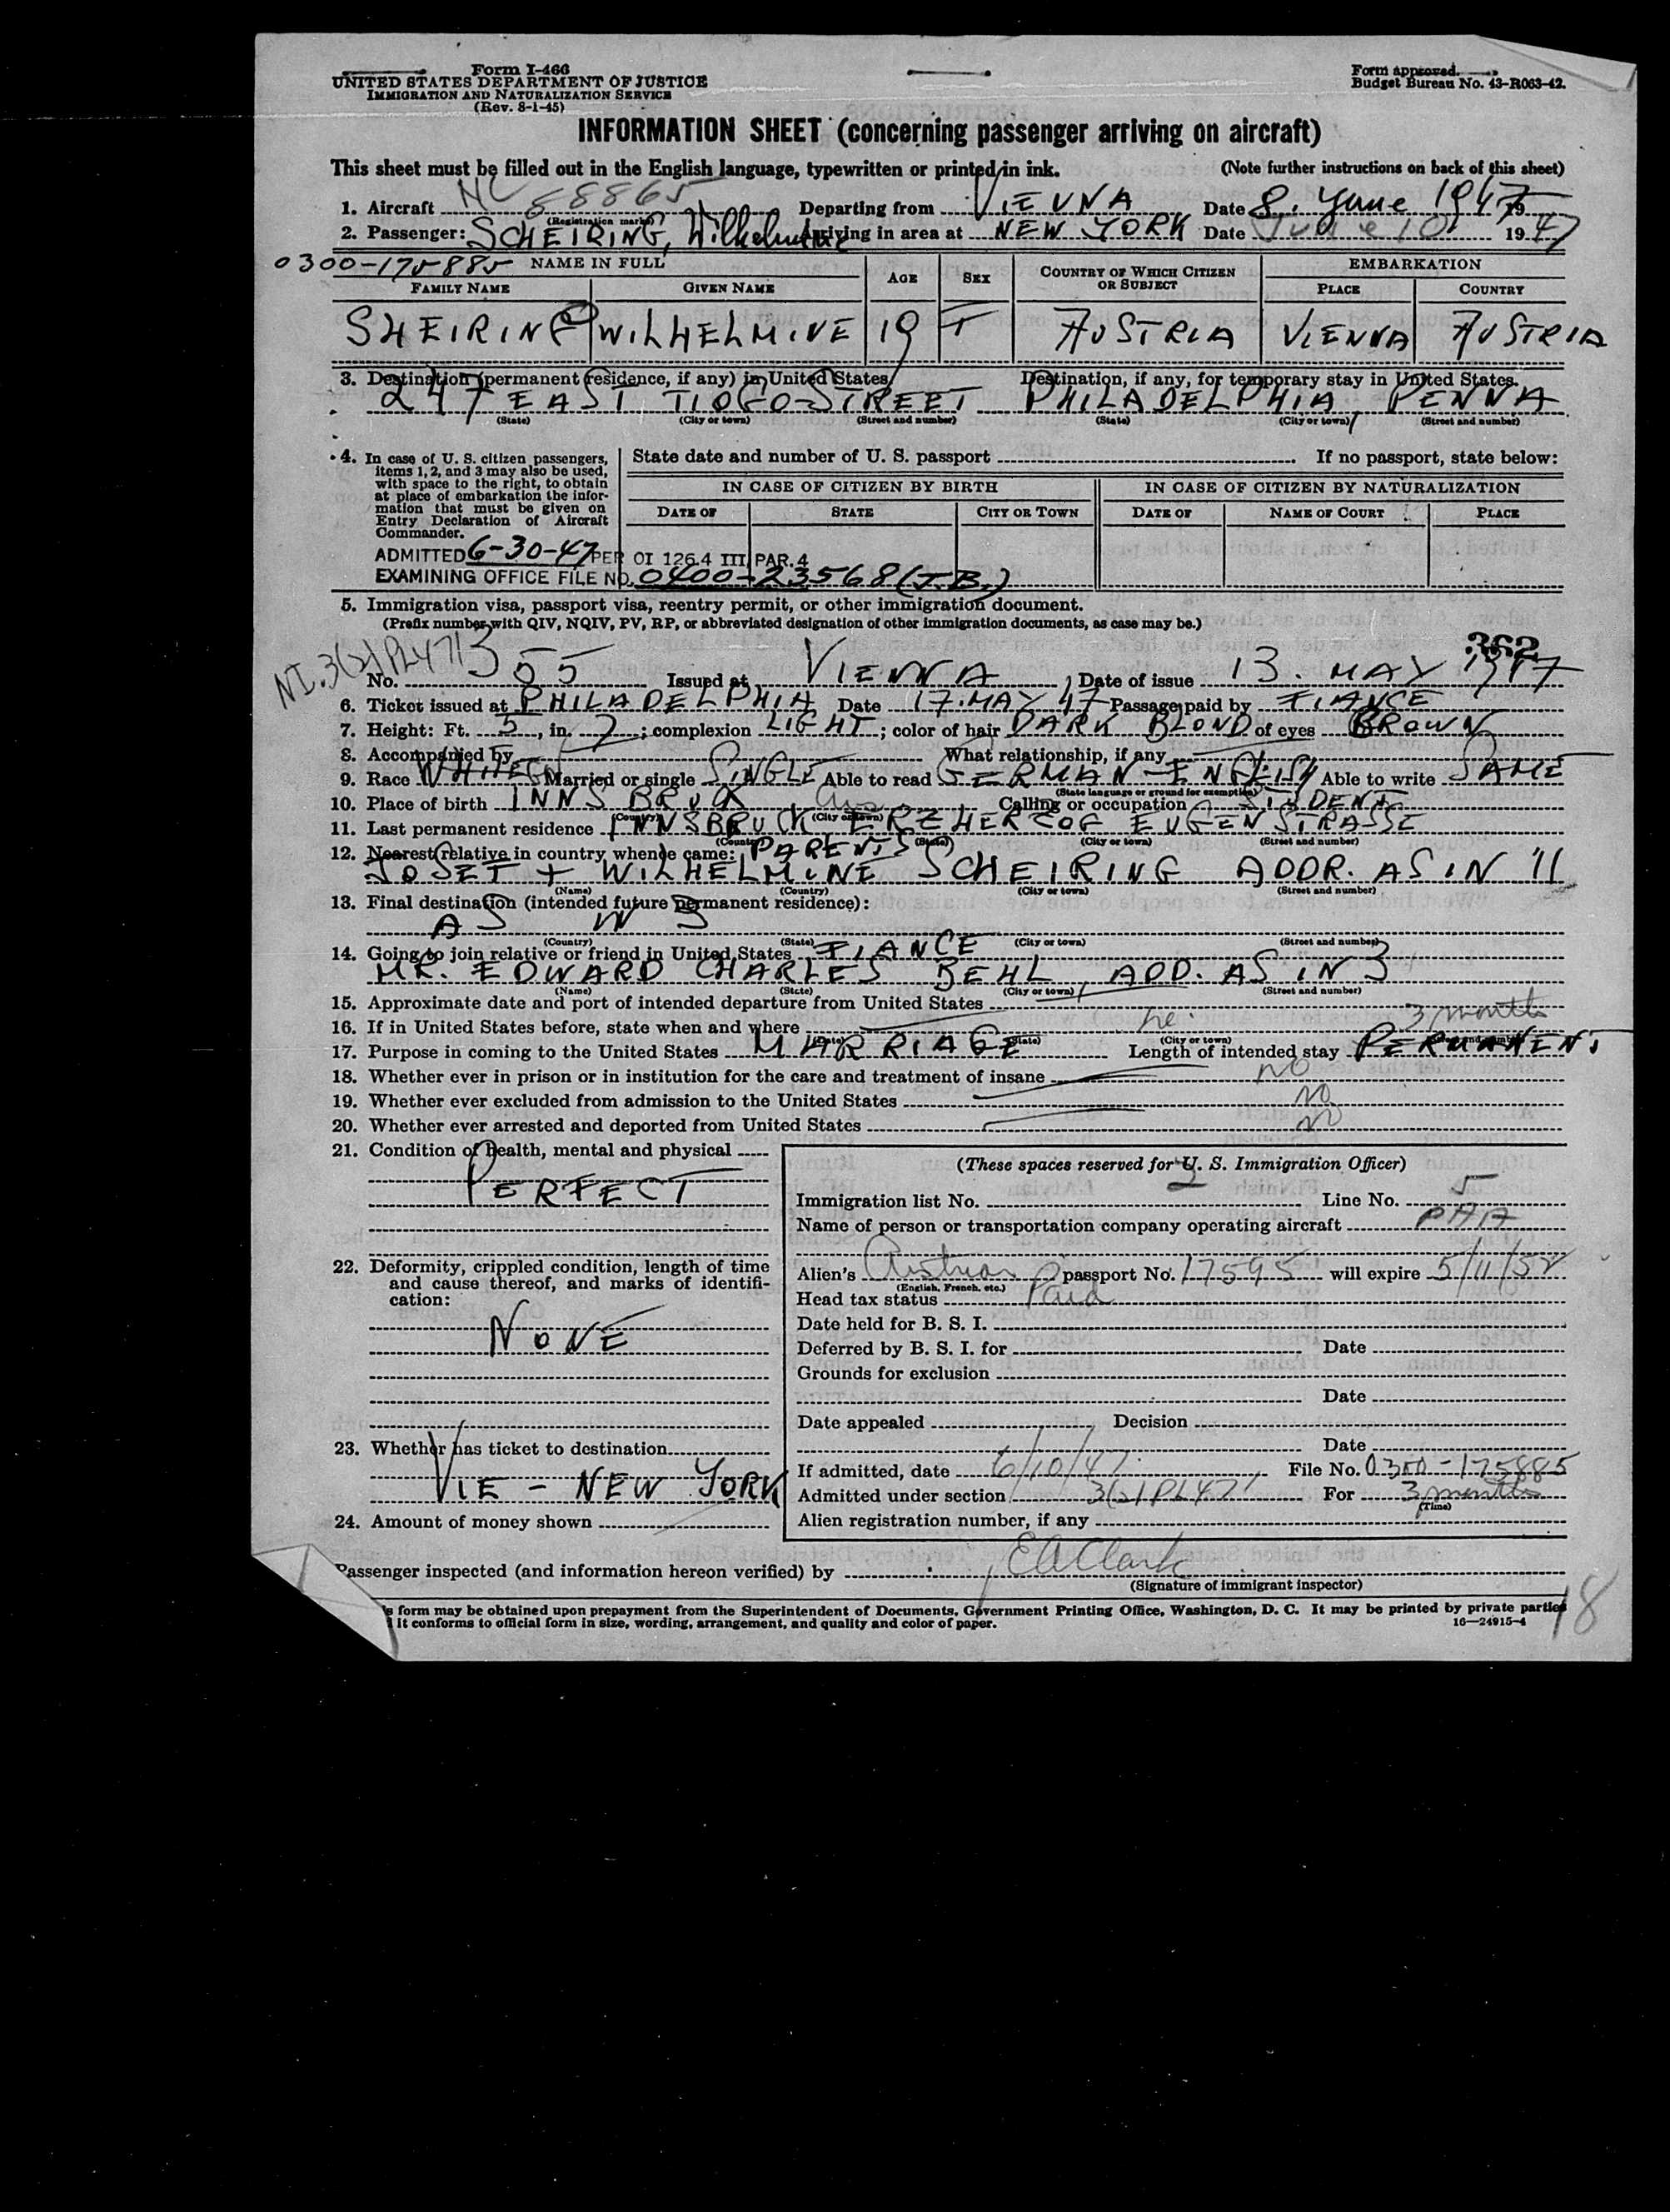 Form I-466
UNITED STATES DEPARTMENT OF JUSTICE
IMMIGRATION AND NATURALIZATION SERVICE
(Rev. 8-1-45)
Form approved.
Budget Bureau No. 43-R063-42.
INFORMATION SHEET (concerning passenger arriving on aircraft)
This sheet must be filled out in the English language, typewritten or printed in ink. (Note further instructions on back of this sheet)
1. Aircraft NC 88865 (Registration marks) Departing from VIENNA Date 8. June 1947 19
2. Passenger: SCHEIRING, Wilhelmine Arriving in area at NEW YORK Date June 10 1947
0300-175885 NAME IN FULL AGE SEX COUNTRY OF WHICH CITIZEN OR SUBJECT EMBARKATION
FAMILY NAME GIVEN NAME PLACE COUNTRY
SHEIRING WILHELMINE 19 F AUSTRIA VIENNA AUSTRIA
3. Destination (permanent residence, if any) in United States Destination, if any, for temporary stay in United States.
247 EAST TIOGO-STREET PHILADELPHIA, PENNA
(State) (City or town) (Street and number) (State) (City or town) (Street and number)
4. In case of U. S. citizen passengers, items 1, 2, and 3 may also be used, with space to the right, to obtain at place of embarkation the information that must be given on Entry Declaration of Aircraft Commander.
State date and number of U. S. passport If no passport, state below:
IN CASE OF CITIZEN BY BIRTH IN CASE OF CITIZEN BY NATURALIZATION
DATE OF STATE CITY OR TOWN DATE OF NAME OF COURT PLACE
ADMITTED 6-30-47 PER OI 126.4 III PAR. 4
EXAMINING OFFICE FILE NO. 0400-23568 (J.B.)
5. Immigration visa, passport visa, reentry permit, or other immigration document.
(Prefix number with QIV, NQIV, PV, RP, or abbreviated designation of other immigration documents, as case may be.)
362
NI.3(2)PL471
No. 355 Issued at VIENNA, Date of issue 13. MAY 1947
6. Ticket issued at PHILADELPHIA Date 17. MAY 47 Passage paid by FIANCE
7. Height: Ft. 5, in. 7; complexion LIGHT; color of hair DARK BLOND of eyes BROWN
8. Accompanied by What relationship, if any
9. Race WHITE Married or single SINGLE Able to read GERMAN-ENGLISH Able to write SAME
(State language or ground for exemption)
10. Place of birth INNSBRUCK Aus Calling or occupation STUDENT
(Country) (City or town)
11. Last permanent residence INNSBRUCK ERZHERZOG EUGENSTRASSE
(Country) (State) (City or town) (Street and number)
12. Nearest relative in country whence came: PARENTS
JOSEF + WILHELMINE SCHEIRING ADDR. AS IN 11
(Name) (Country) (City or town) (Street and number)
13. Final destination (intended future permanent residence):
AS IN 3
(Country) (State) (City or town) (Street and number)
14. Going to join relative or friend in United States FIANCE
MR. EDWARD CHARLES BEHL, ADD. AS IN 3
(Name) (State) (City or town) (Street and number)
15. Approximate date and port of intended departure from United States
16. If in United States before, state when and where 3 months
(Date) (State) (City or town) (Street and number)
17. Purpose in coming to the United States MARRIAGE Length of intended stay PERMANENT
18. Whether ever in prison or in institution for the care and treatment of insane no
19. Whether ever excluded from admission to the United States no
20. Whether ever arrested and deported from United States no
21. Condition of health, mental and physical
PERFECT
22. Deformity, crippled condition, length of time and cause thereof, and marks of identification:
NONE
23. Whether has ticket to destination
VIE - NEW YORK
24. Amount of money shown
(These spaces reserved for U. S. Immigration Officer)
Immigration list No. 2 Line No. 5
Name of person or transportation company operating aircraft PAA
Alien's Austrian passport No. 17595 will expire 5/11/52
(English, French, etc.)
Head tax status Paid
Date held for B. S. I.
Deferred by B. S. I. for Date
Grounds for exclusion
Date
Date appealed Decision
Date
If admitted, date 6/10/47 File No. 0300-175885
Admitted under section 3(2)PL471 For 3 months
(Time)
Alien registration number, if any
Passenger inspected (and information hereon verified) by EAClark
(Signature of immigrant inspector)
s form may be obtained upon prepayment from the Superintendent of Documents, Government Printing Office, Washington, D. C. It may be printed by private parties
it conforms to official form in size, wording, arrangement, and quality and color of paper. 16—24915-4
18